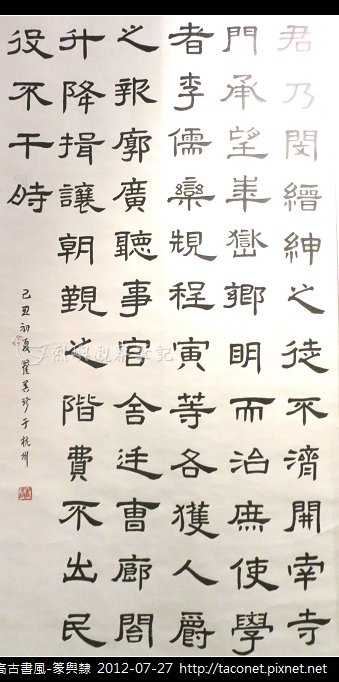 君乃閔縉紳之徒不濟開南寺
門承望華嶽鄉明而治庶使學
者李儒欒規程寅等各獲人爵
之報廓廣聽事官舍廷曹廊閣
升降揖讓朝覲之階費不出民
役不干時
己丑初夏翟美珍于杭州
烈嶼觀察筆記
高古書風-篆與隸 2012-07-27 http://taconet.pixnet.net